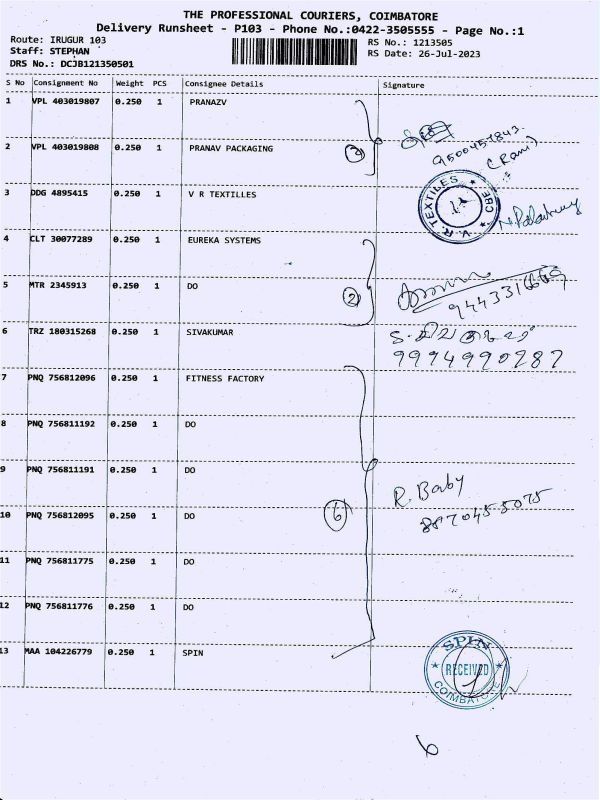 THE PROFESSIONAL COURIERS, COIMBATORE
Delivery Runsheet - P103 - Phone No.:0422-3505555 - Page No.:1
Route: IRUGUR 103
RS No.: 1213505
Staff: STEPHAN
RS Date: 26-Jul-2023
DRS No.: DCJB121350501
S No Consignment No Weight PCS Consignee Details Signature
1 VPL 403019807 0.250 1 PRANAZV
2 VPL 403019808 0.250 1 PRANAV PACKAGING
2
9500457843.
(Ram)
3 DDG 4895415 0.250 1 V R TEXTILLES
V.R. TEXTILES CBE
4 CLT 30077289 0.250 1 EUREKA SYSTEMS
5 MTR 2345913 0.250 1 DO
2
9443316669
6 TRZ 180315268 0.250 1 SIVAKUMAR
9994990287
7 PNQ 756812096 0.250 1 FITNESS FACTORY
8 PNQ 756811192 0.250 1 DO
9 PNQ 756811191 0.250 1 DO
R. Baby
10 PNQ 756812095 0.250 1 DO
6
8870455075
11 PNQ 756811775 0.250 1 DO
12 PNQ 756811776 0.250 1 DO
13 MAA 104226779 0.250 1 SPIN
SPIN
RECEIVED
COIMBATORE
6